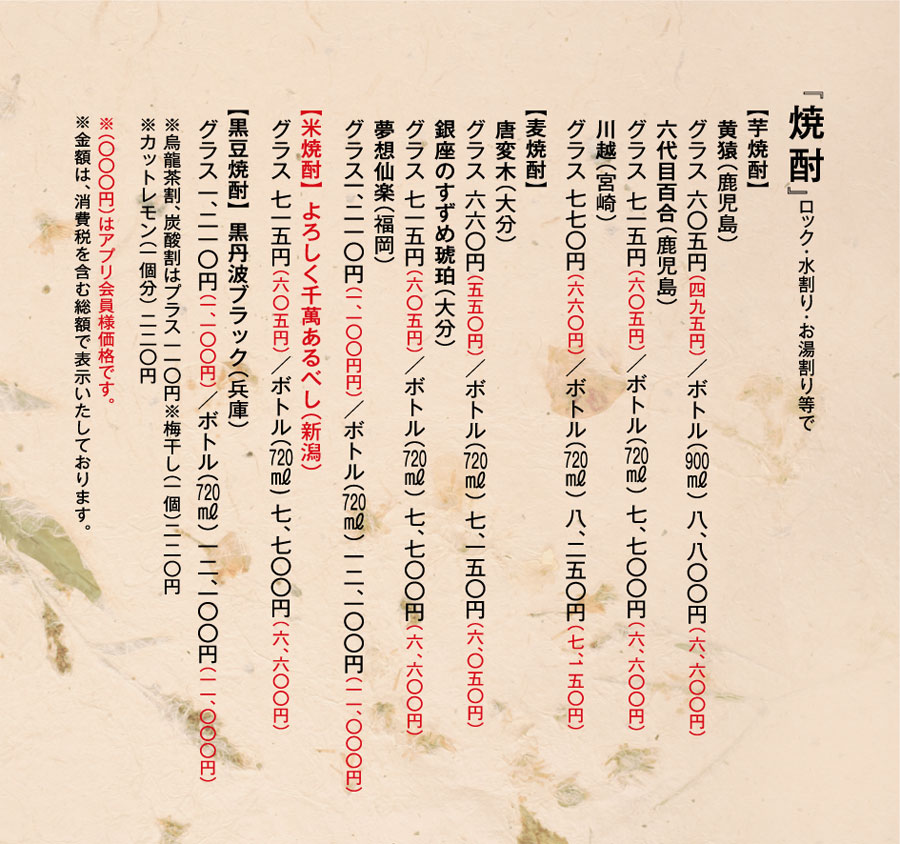 『焼酎』ロック・水割り・お湯割り等で
【芋焼酎】
黄猿(鹿児島)
グラス 六〇五円(四九五円)／ボトル(900㎖) 八、八〇〇円(六、六〇〇円)
六代目百合(鹿児島)
グラス 七一五円(六〇五円)／ボトル(720㎖) 七、七〇〇円(六、六〇〇円)
川越(宮崎)
グラス 七七〇円(六六〇円)／ボトル(720㎖) 八、二五〇円(七、一五〇円)
【麦焼酎】
唐変木(大分)
グラス 六六〇円(五五〇円)／ボトル(720㎖) 七、一五〇円(六、〇五〇円)
銀座のすずめ琥珀(大分)
グラス 七一五円(六〇五円)／ボトル(720㎖) 七、七〇〇円(六、六〇〇円)
夢想仙楽(福岡)
グラス一、二一〇円(一、一〇〇円円)／ボトル(720㎖) 一二、一〇〇円(一一、〇〇〇円)
【米焼酎】 よろしく千萬あるべし(新潟)
グラス 七一五円(六〇五円)／ボトル(720㎖) 七、七〇〇円(六、六〇〇円)
【黒豆焼酎】 黒丹波ブラック(兵庫)
グラス一、二一〇円(一、一〇〇円)／ボトル(720㎖) 一二、一〇〇円(一一、〇〇〇円)
※烏龍茶割、炭酸割はプラス一一〇円※梅干し(一個)二二〇円
※カットレモン(一個分)二二〇円
※(〇〇〇円)はアプリ会員様価格です。
※金額は、消費税を含む総額で表示いたしております。